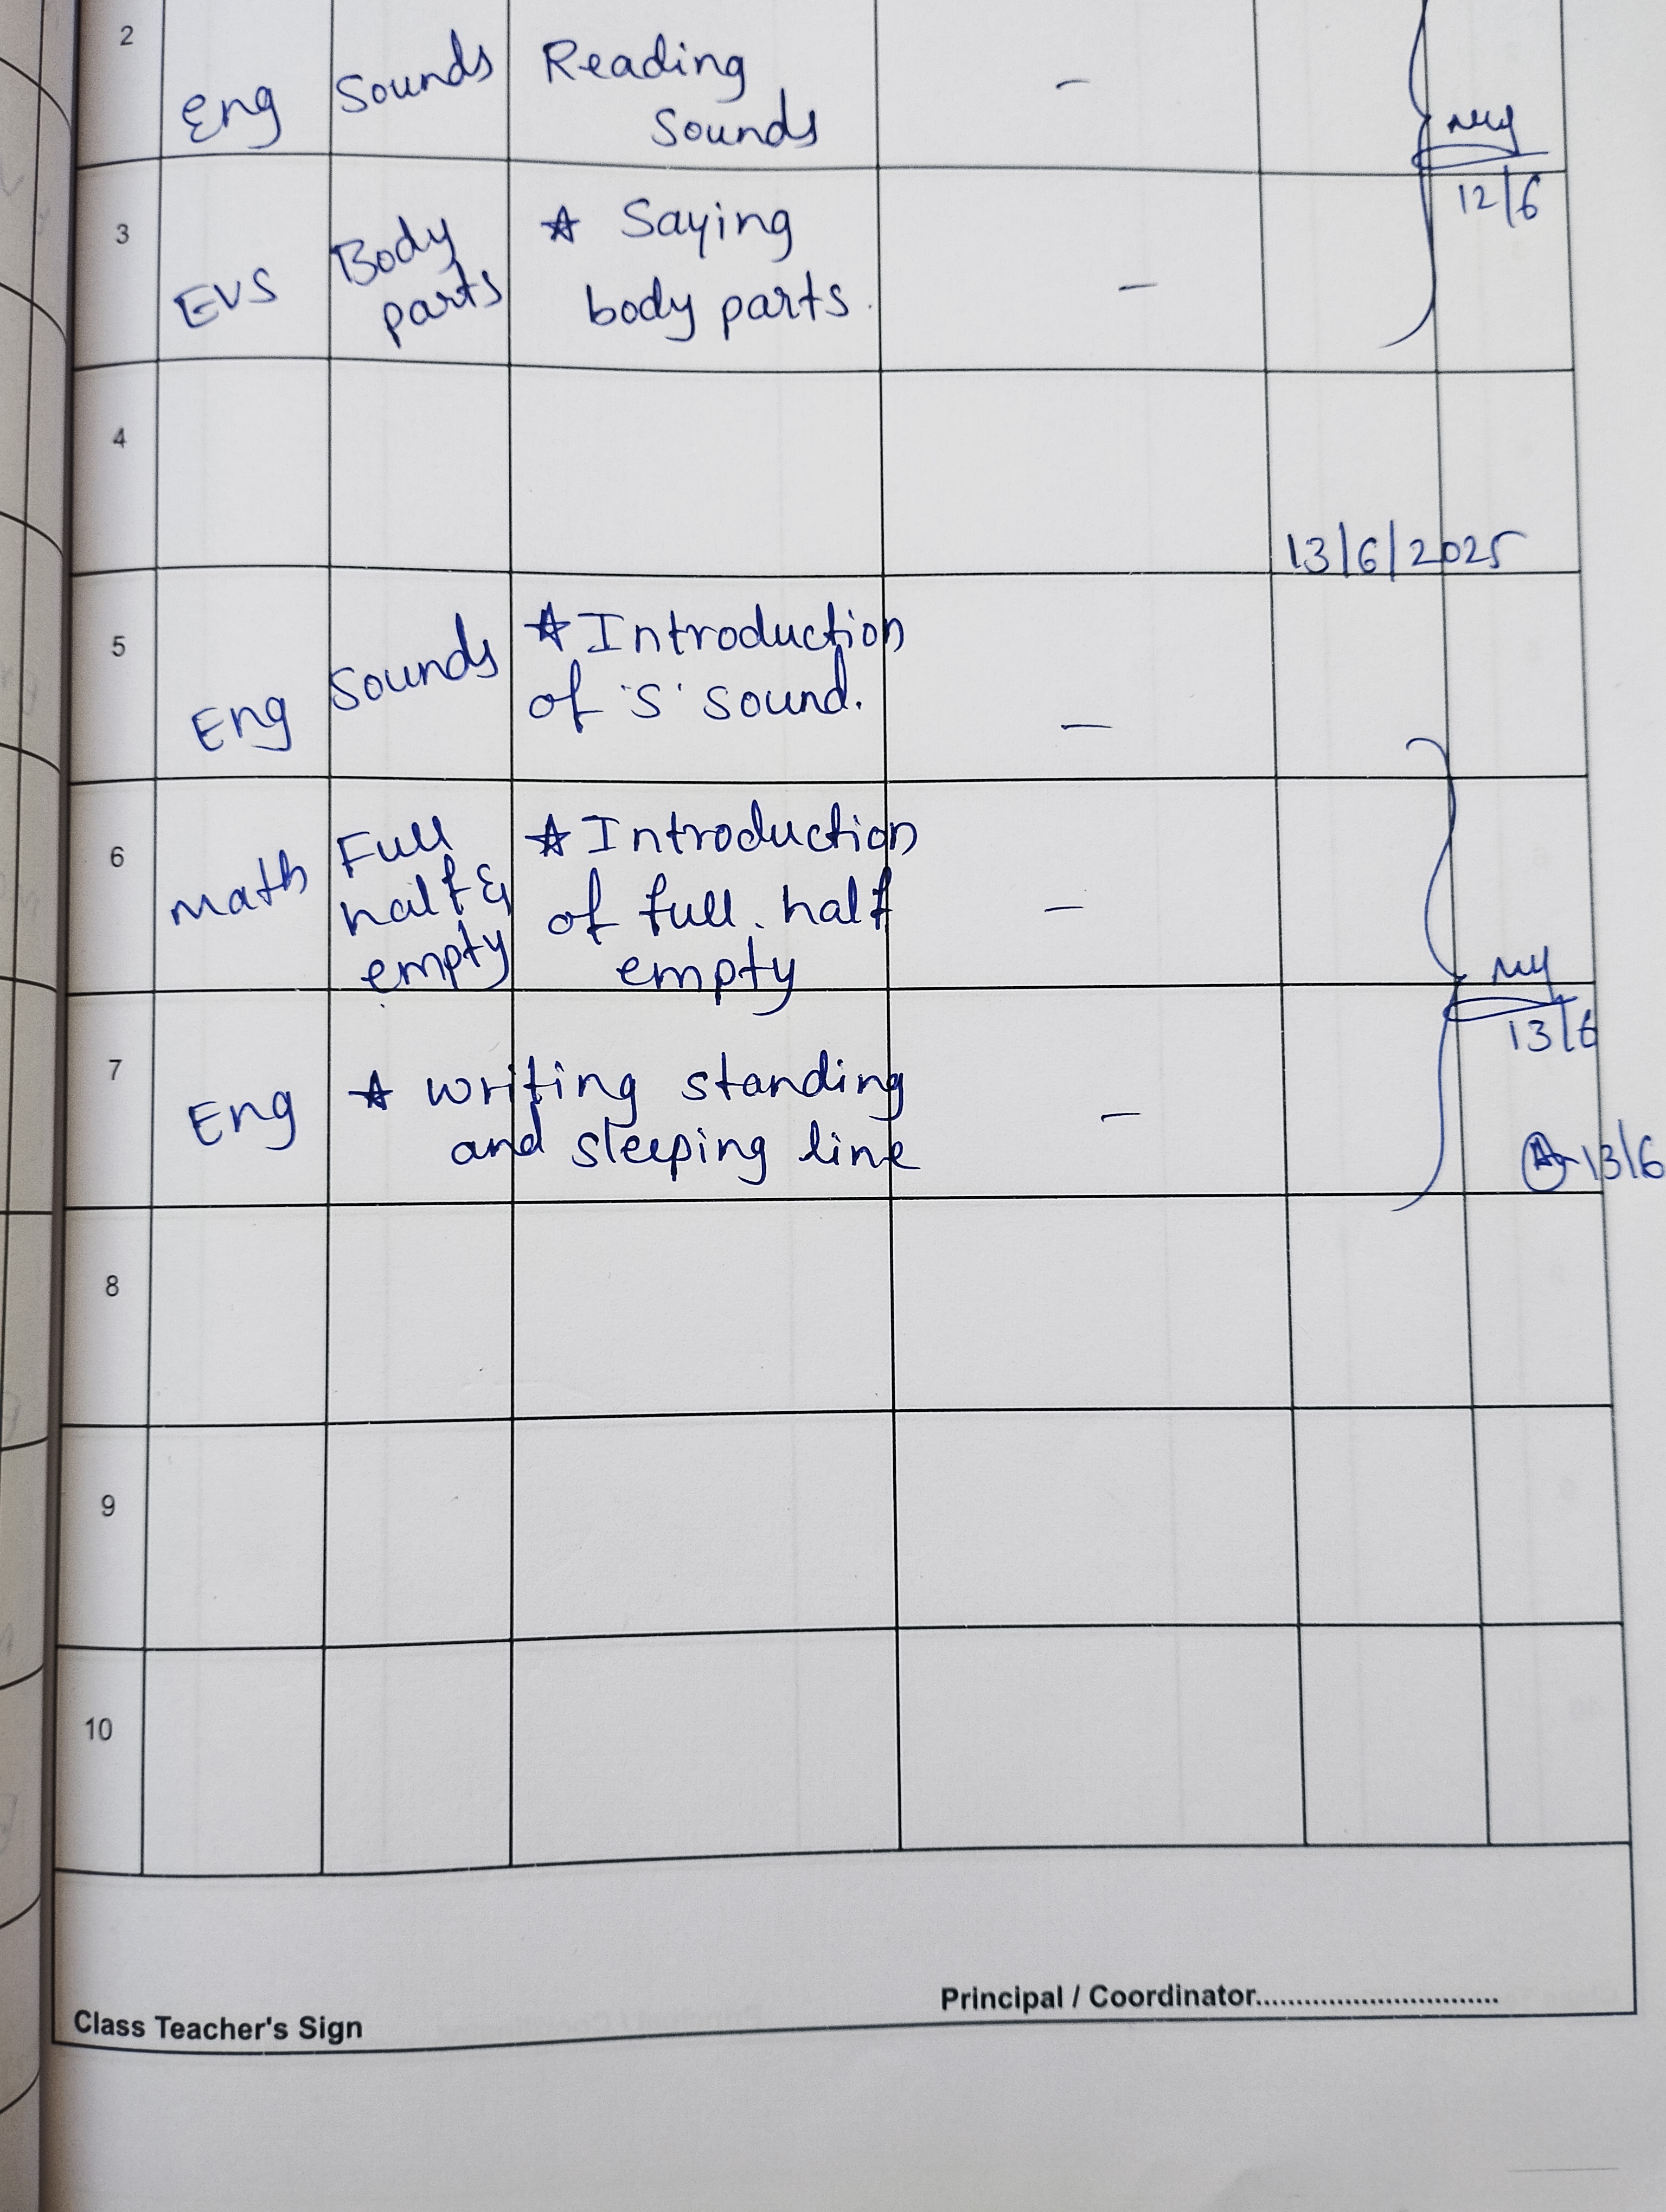 2
Eng
Sounds
Reading
Sounds
-
12/6
3
EVS
Body
parts
☆ Saying
body parts.
-
4
13/6/2025
5
Eng
Sounds
☆ Introduction
of 's' sound.
-
6
Math
Full
half &
empty
☆ Introduction
of full. half
empty
-
13/6
7
Eng
☆ writing standing
and sleeping line
-
13/6
8
9
10
Class Teacher's Sign
Principal / Coordinator..............................